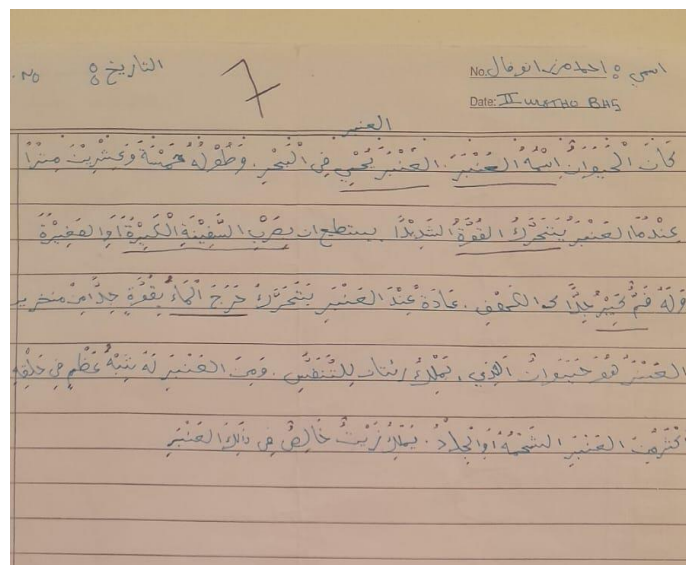 اسمي : احمد مزر انوفال
No.
التاريخ :
No.
7
Date: II
BHS
العنبر
كَانَ الْحَيَوَانُ اِسْمُهُ العَنْبَرَ. العَنْبَرَ يُحْيِي فِي الْبَحْرِ. وَطُوْلُهُ خَمْسَةَ وَعِشْرِيْنَ مِتْرًا
عِنْدَمَا العَنْبَرَ يَتَحَرَّكُ القُوَّةُ الشَّدِيْدًا يستطيع ان يضرب السَّفِيْنَةِ الْكَبِيْرَةُ اَوِ الصَغِيْرَةُ
وَلَهُ فَمٌّ كَبِيْرٌ جِدًّا كالكهف. عَادَةً عِنْدَ العَنْبَرِ يَتَحَرَّكُ خَرَجَ الْمَاءُ بِقُوَّةٍ جِدًّا مِنْ منخرية
العَنْبَرُ هُوَ حَيَوَانُ الَّذِي يَمْلِكُ رئتان لِلتَّنَفُّسِ. وَمِنَ العَنْبَرِ لَهُ شِبْهُ عَظْمٍ فِي حَلْقِهِ
كَثُرَ مِنَ العَنْبَرِ الشَحْمَةُ اَوِ الْجِلْدُ. يَمْلِكُ زَيْتُ خَالِصٌ فِي ذٰلِكَ العَنْبَرِ